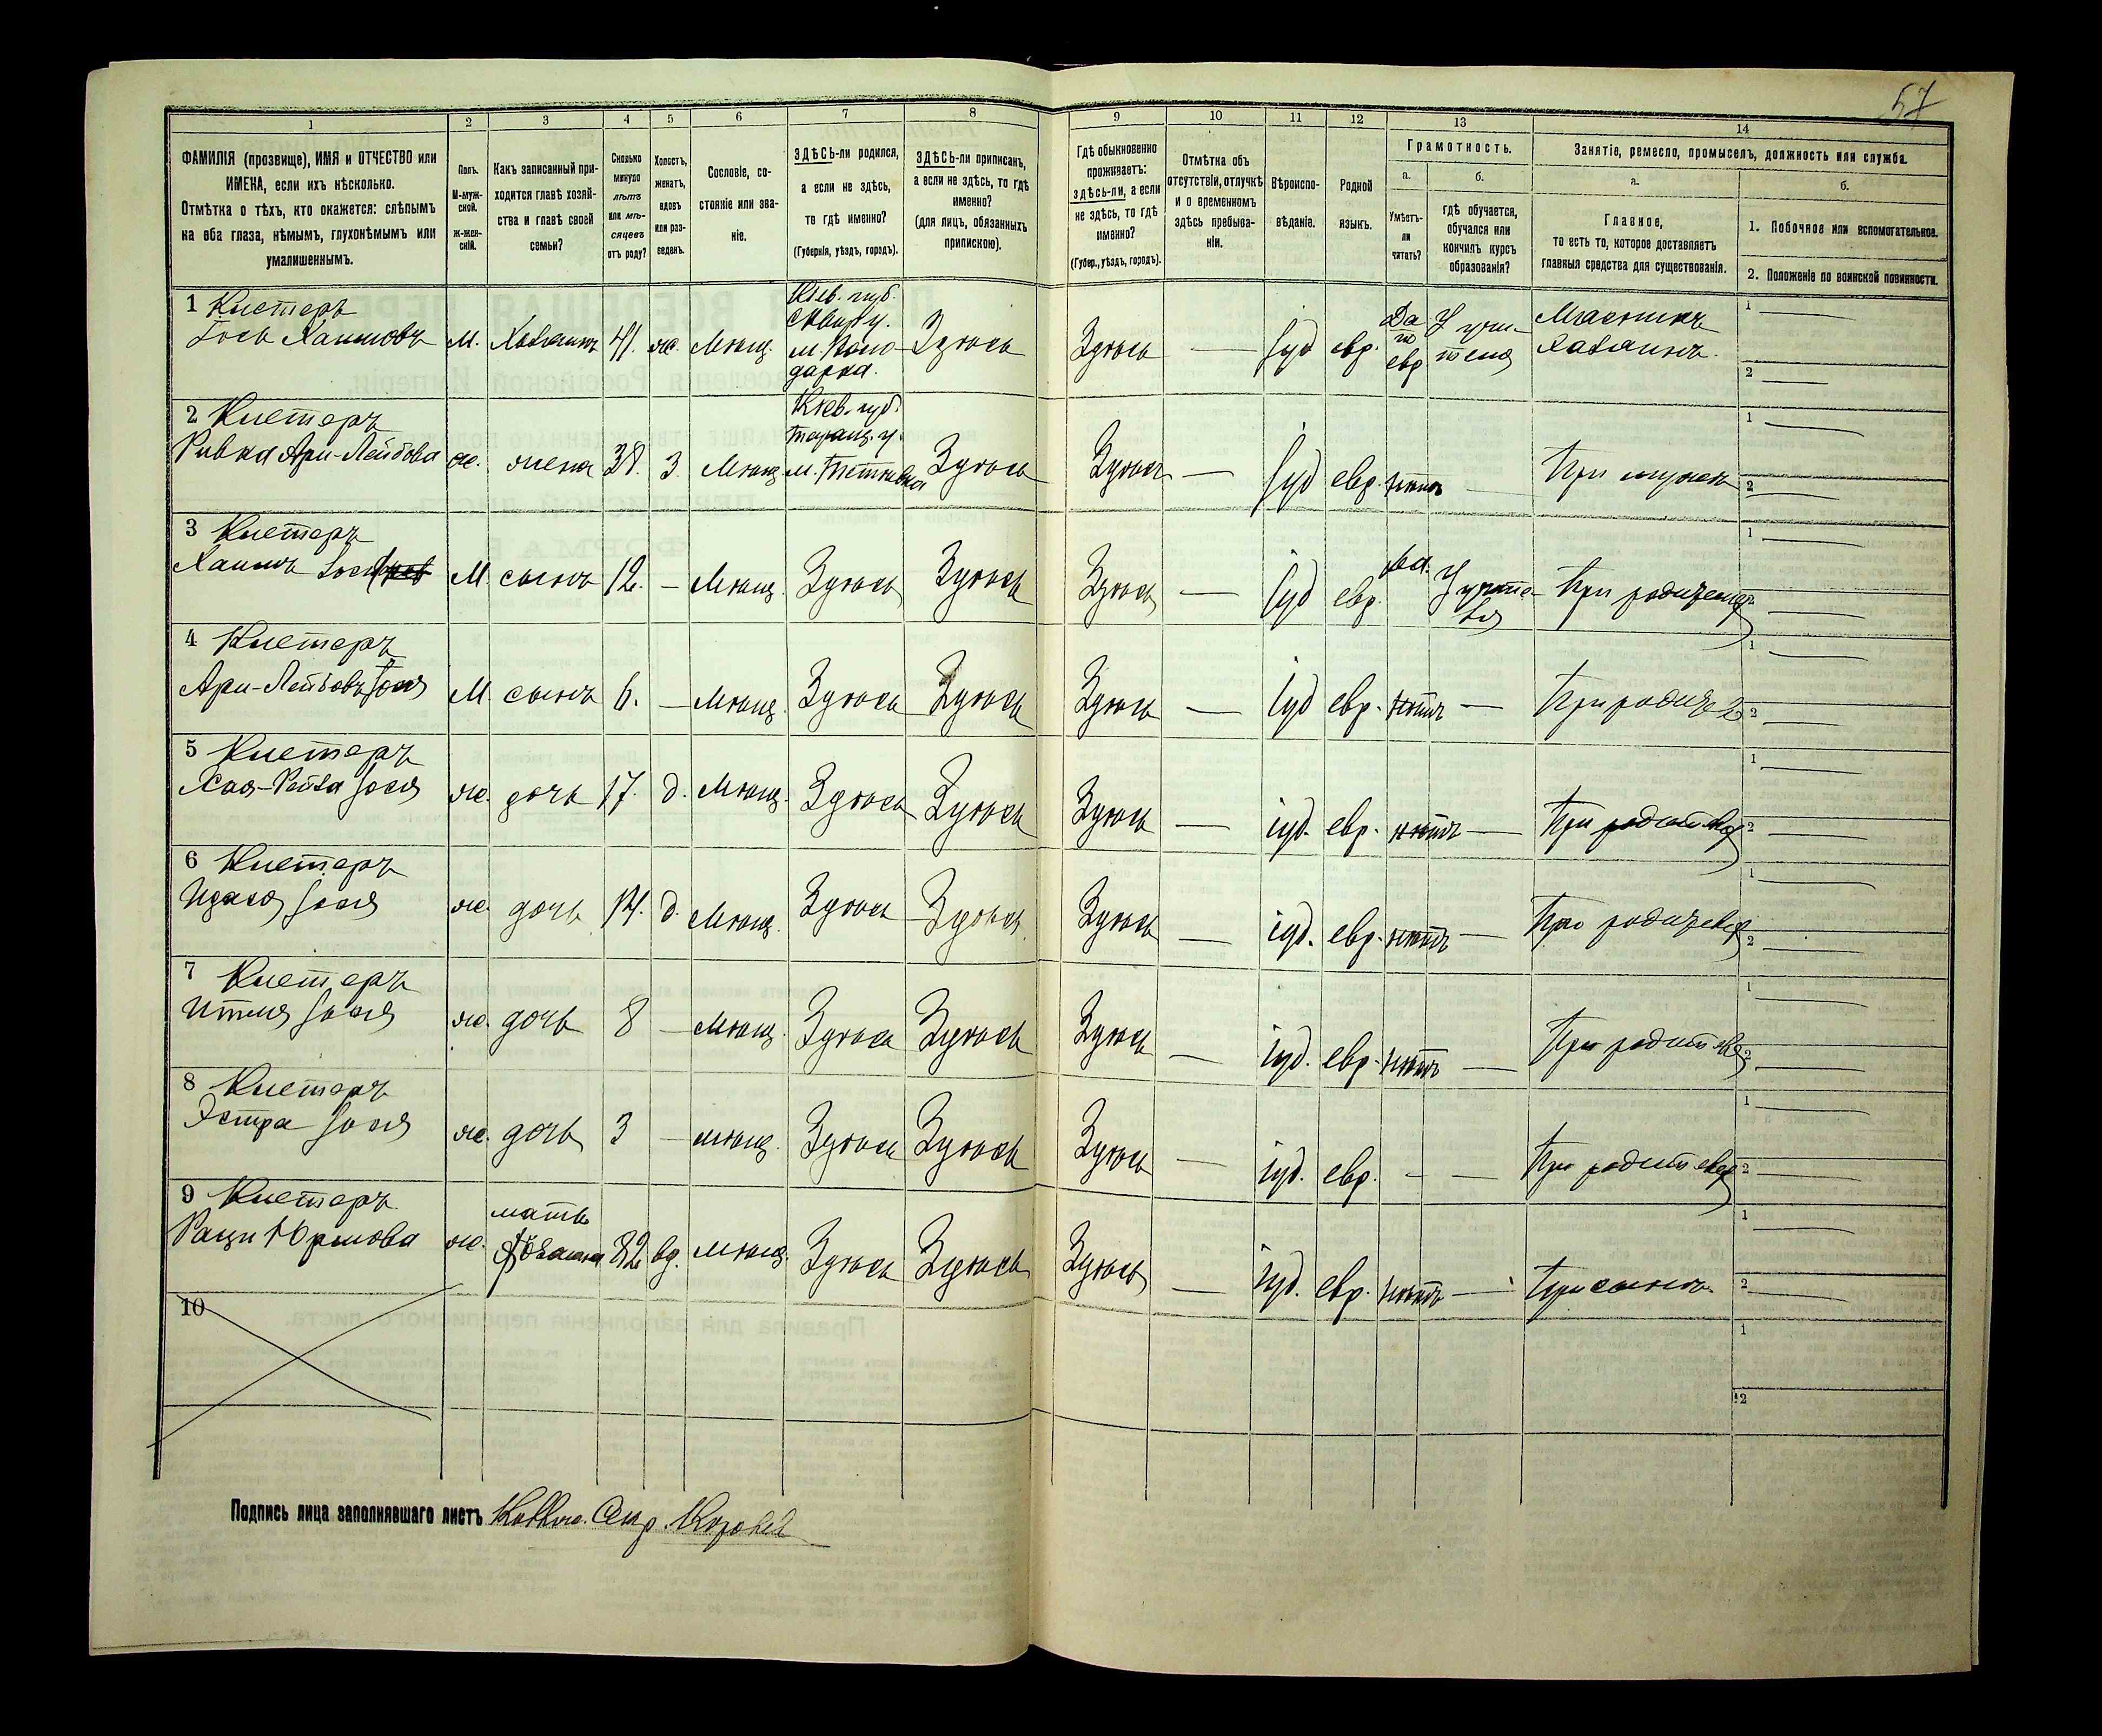 57
1 2 3 4 5 6 7 8 9 10 11 12 13 14
ФАМИЛІЯ (прозвище), ИМЯ и ОТЧЕСТВО или
ИМЕНА, если ихъ нѣсколько.
Отмѣтка о тѣхъ, кто окажется: слѣпымъ
на оба глаза, нѣмымъ, глухонѣмымъ или
умалишеннымъ.
Полъ.
М-муж-
ской.
Ж-жен-
скій.
Какъ записанный при-
ходится главѣ хозяй-
ства и главѣ своей
семьи?
Сколько
минуло
лѣтъ
или мѣ-
сяцевъ
отъ роду?
Холостъ,
женатъ,
вдовъ
или раз-
веденъ.
Сословіе, со-
стояніе или зва-
ніе.
ЗДѢСЬ-ли родился,
а если не здѣсь,
то гдѣ именно?
(Губернія, уѣздъ, городъ).
ЗДѢСЬ-ли приписанъ,
а если не здѣсь, то гдѣ
именно?
(для лицъ, обязанныхъ
припискою).
Гдѣ обыкновенно
проживаетъ:
здѣсь-ли, а если
не здѣсь, то гдѣ
именно?
(Губер., уѣздъ, городъ).
Отмѣтка объ
отсутствіи, отлучкѣ
и о временномъ
здѣсь пребыва-
ніи.
Вѣроиспо-
вѣданіе.
Родной
языкъ.
Грамотность.
а.
Умѣетъ-
ли
читать?
б.
гдѣ обучается,
обучался или
кончилъ курсъ
образованія?
Занятіе, ремесло, промыселъ, должность или служба.
а.
Главное,
то есть то, которое доставляетъ
главныя средства для существованія.
б.
1. Побочное или вспомогательное.
2. Положеніе по воинской повинности.
1 Кистеръ
Іось Хаимовъ М. Хозяинъ 41. ж. Мѣщ. Кіев. губ. Сквир у. м. Воло-дарка. Здѣсь Здѣсь — Іуд евр. Да по евр. У учи-теля Мясникъ хозяинъ. 1 — 2 —
2 Кистеръ
Ривка Ари-Лейбова ж. жена 38. З. Мѣщ. Кіев. губ. Таращ. у. м. Здѣсь Здѣсь — Іуд евр. нѣтъ — При мужѣ 1 — 2 —
3 Кистеръ
Хаимъ М. сынъ 12. — Мѣщ. Здѣсь Здѣсь Здѣсь — Іуд евр. да. У учите-ля При родителях 1 — 2 —
4 Кистеръ
Ари-Лейбовъ Іося М. сынъ 6. — Мѣщ. Здѣсь Здѣсь Здѣсь — Іуд евр. нѣтъ — При родит. 1 — 2 —
5 Кистеръ
Хая-Рейза Іося ж. дочь 17. д. Мѣщ. Здѣсь Здѣсь Здѣсь — іуд. евр. нѣтъ — При родителях 1 — 2 —
6 Кистеръ
Іося ж. дочь 14. д. Мѣщ. Здѣсь Здѣсь Здѣсь — іуд. евр. нѣтъ — При родителях 1 — 2 —
7 Кистеръ
Итля Іося ж. дочь 8 — мѣщ. Здѣсь Здѣсь Здѣсь — іуд. евр. нѣтъ — При родителях 1 — 2 —
8 Кистеръ
Эстра Іося ж. дочь 3 — мѣщ. Здѣсь Здѣсь Здѣсь — іуд. евр. — — При родителях 1 — 2 —
9 Кистеръ
ж. мать 82 вд. мѣщ. Здѣсь Здѣсь Здѣсь — іуд. евр. нѣтъ — При сынѣ. 1 — 2 —
10 1 2
Подпись лица заполнявшаго листъ